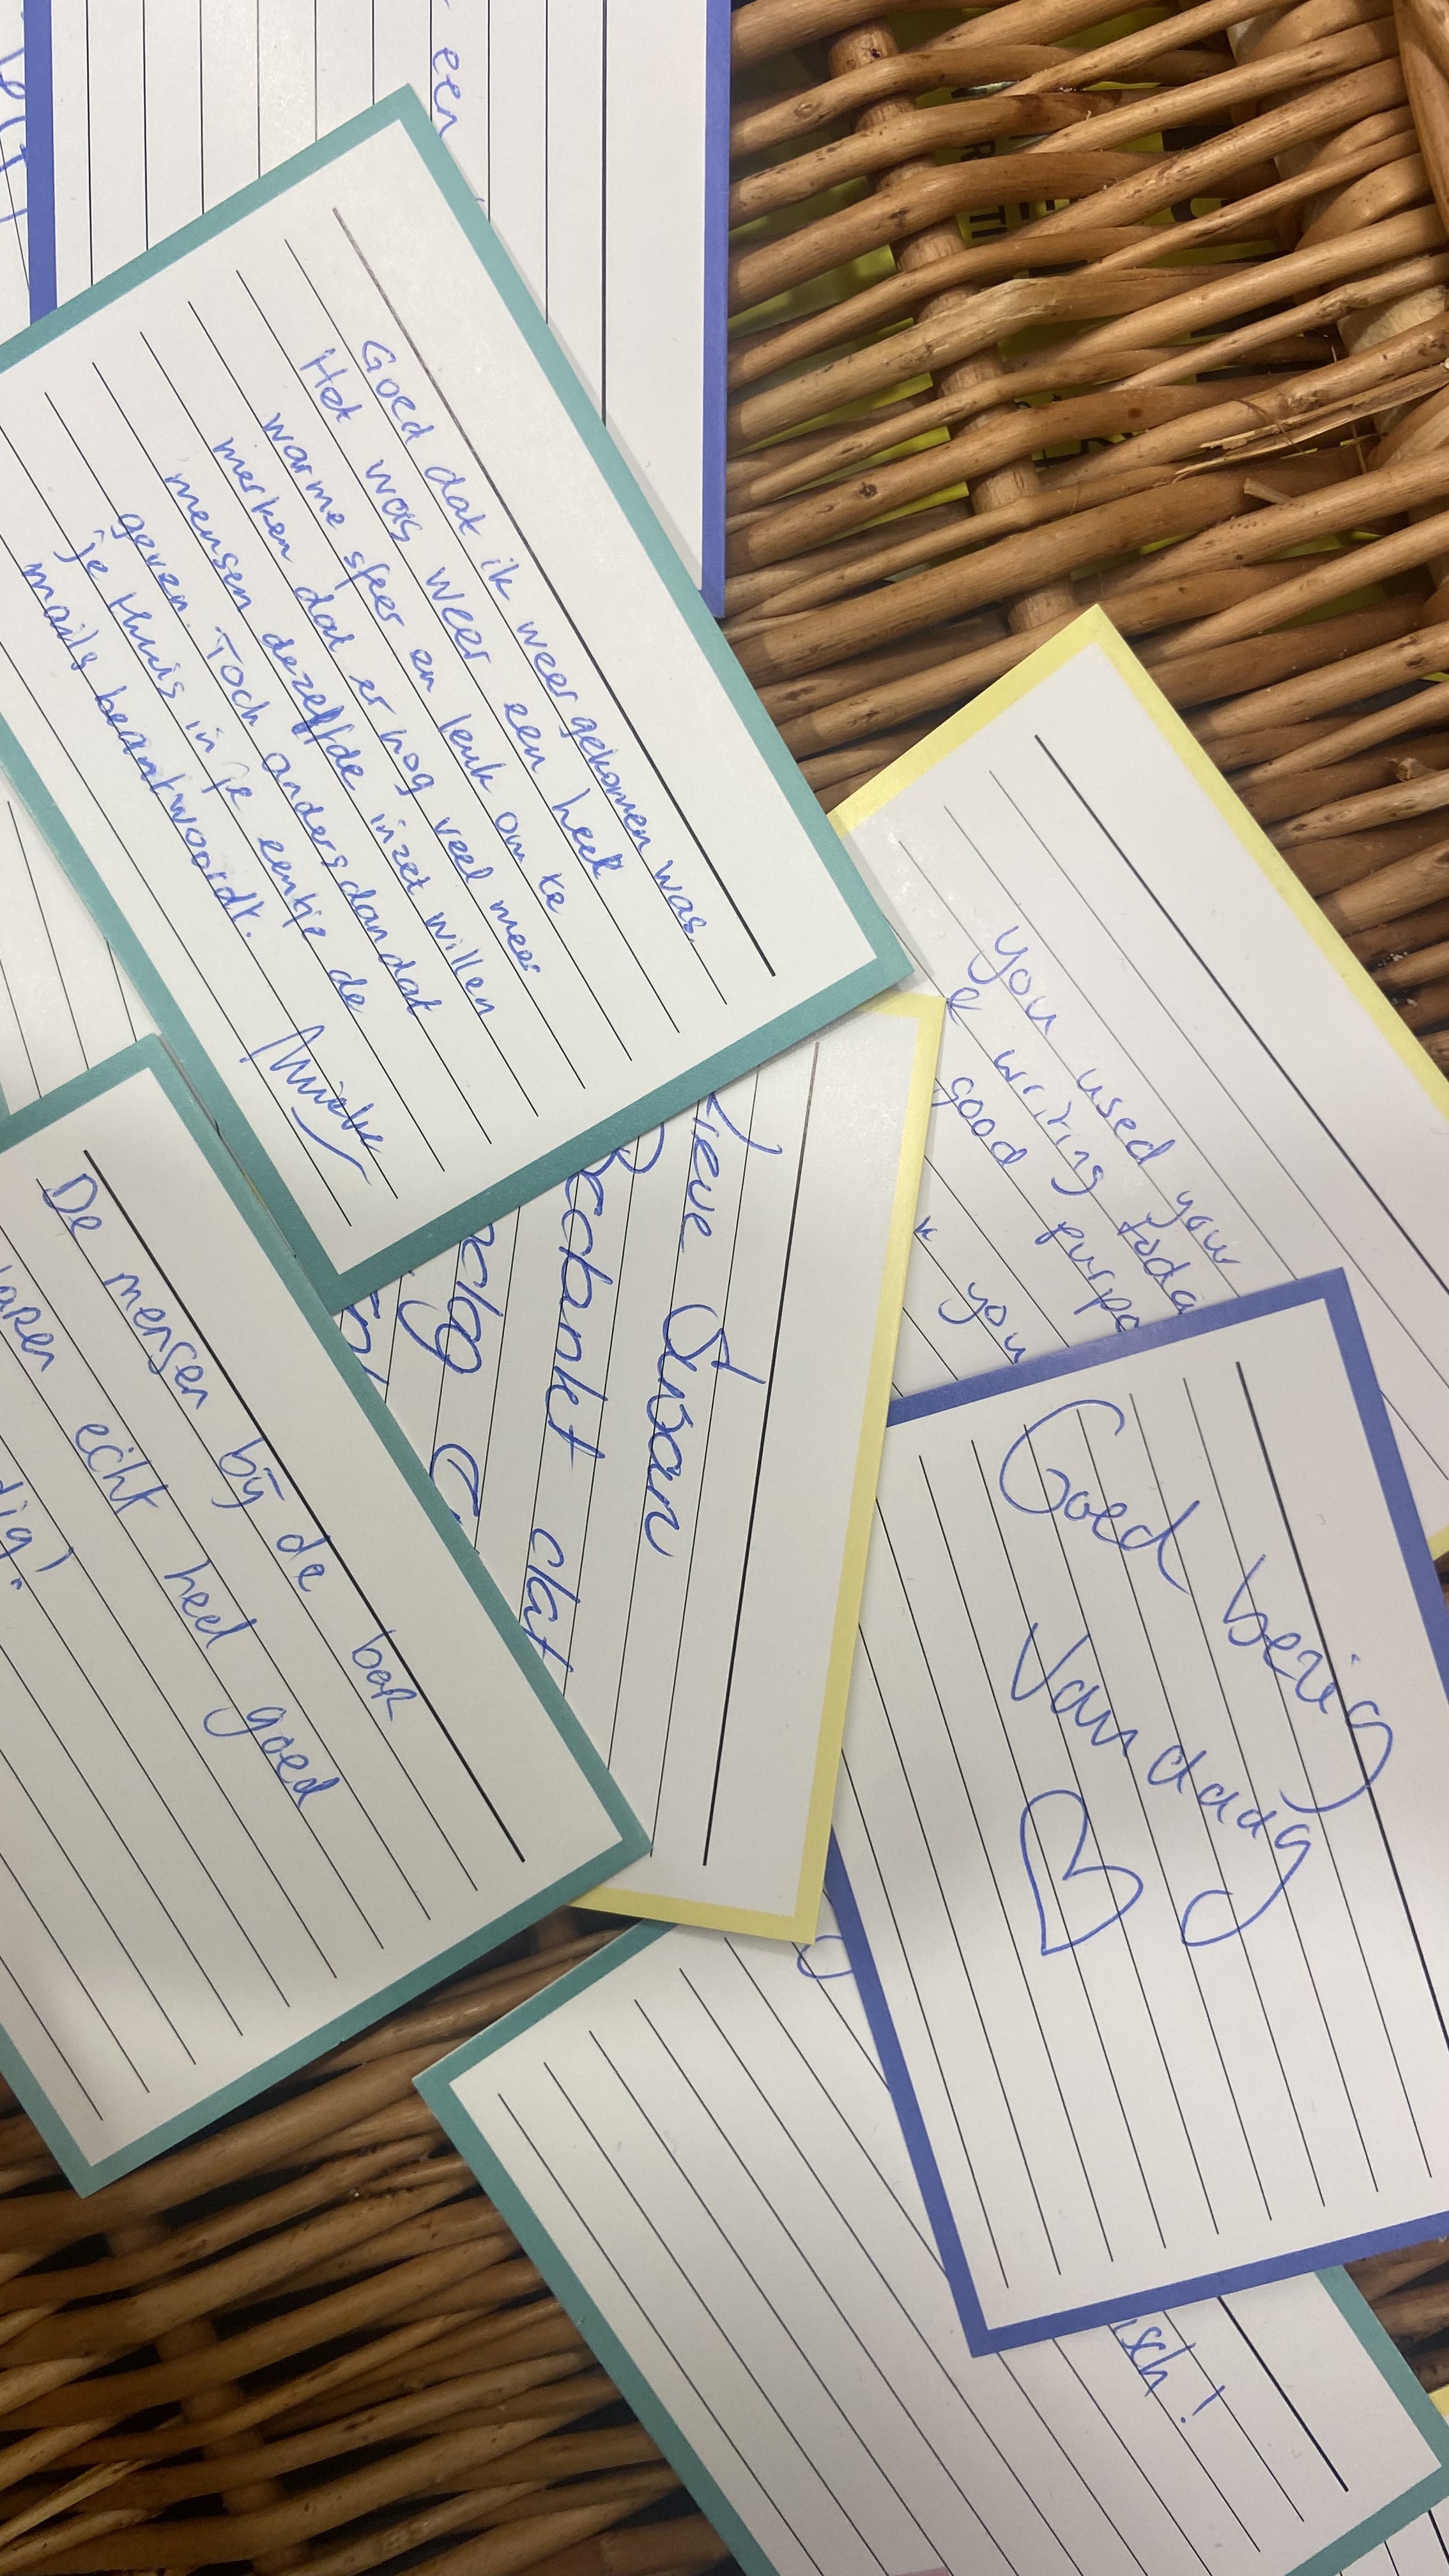 een
Goed dat ik weer gekomen was.
Het was weer een hele
warme sfeer en leuk om te
merken dat er nog veel meer
mensen dezelfde inzet willen
geven. Toch anders dan dat
je thuis in je eentje de
mails beantwoordt.
Mieke
you used your
writing toda
good purpo
you
Lieve Susan
Bedankt dat
De mensen bij de bar
echt heel goed
Goed bezig
Vandaag
isch!